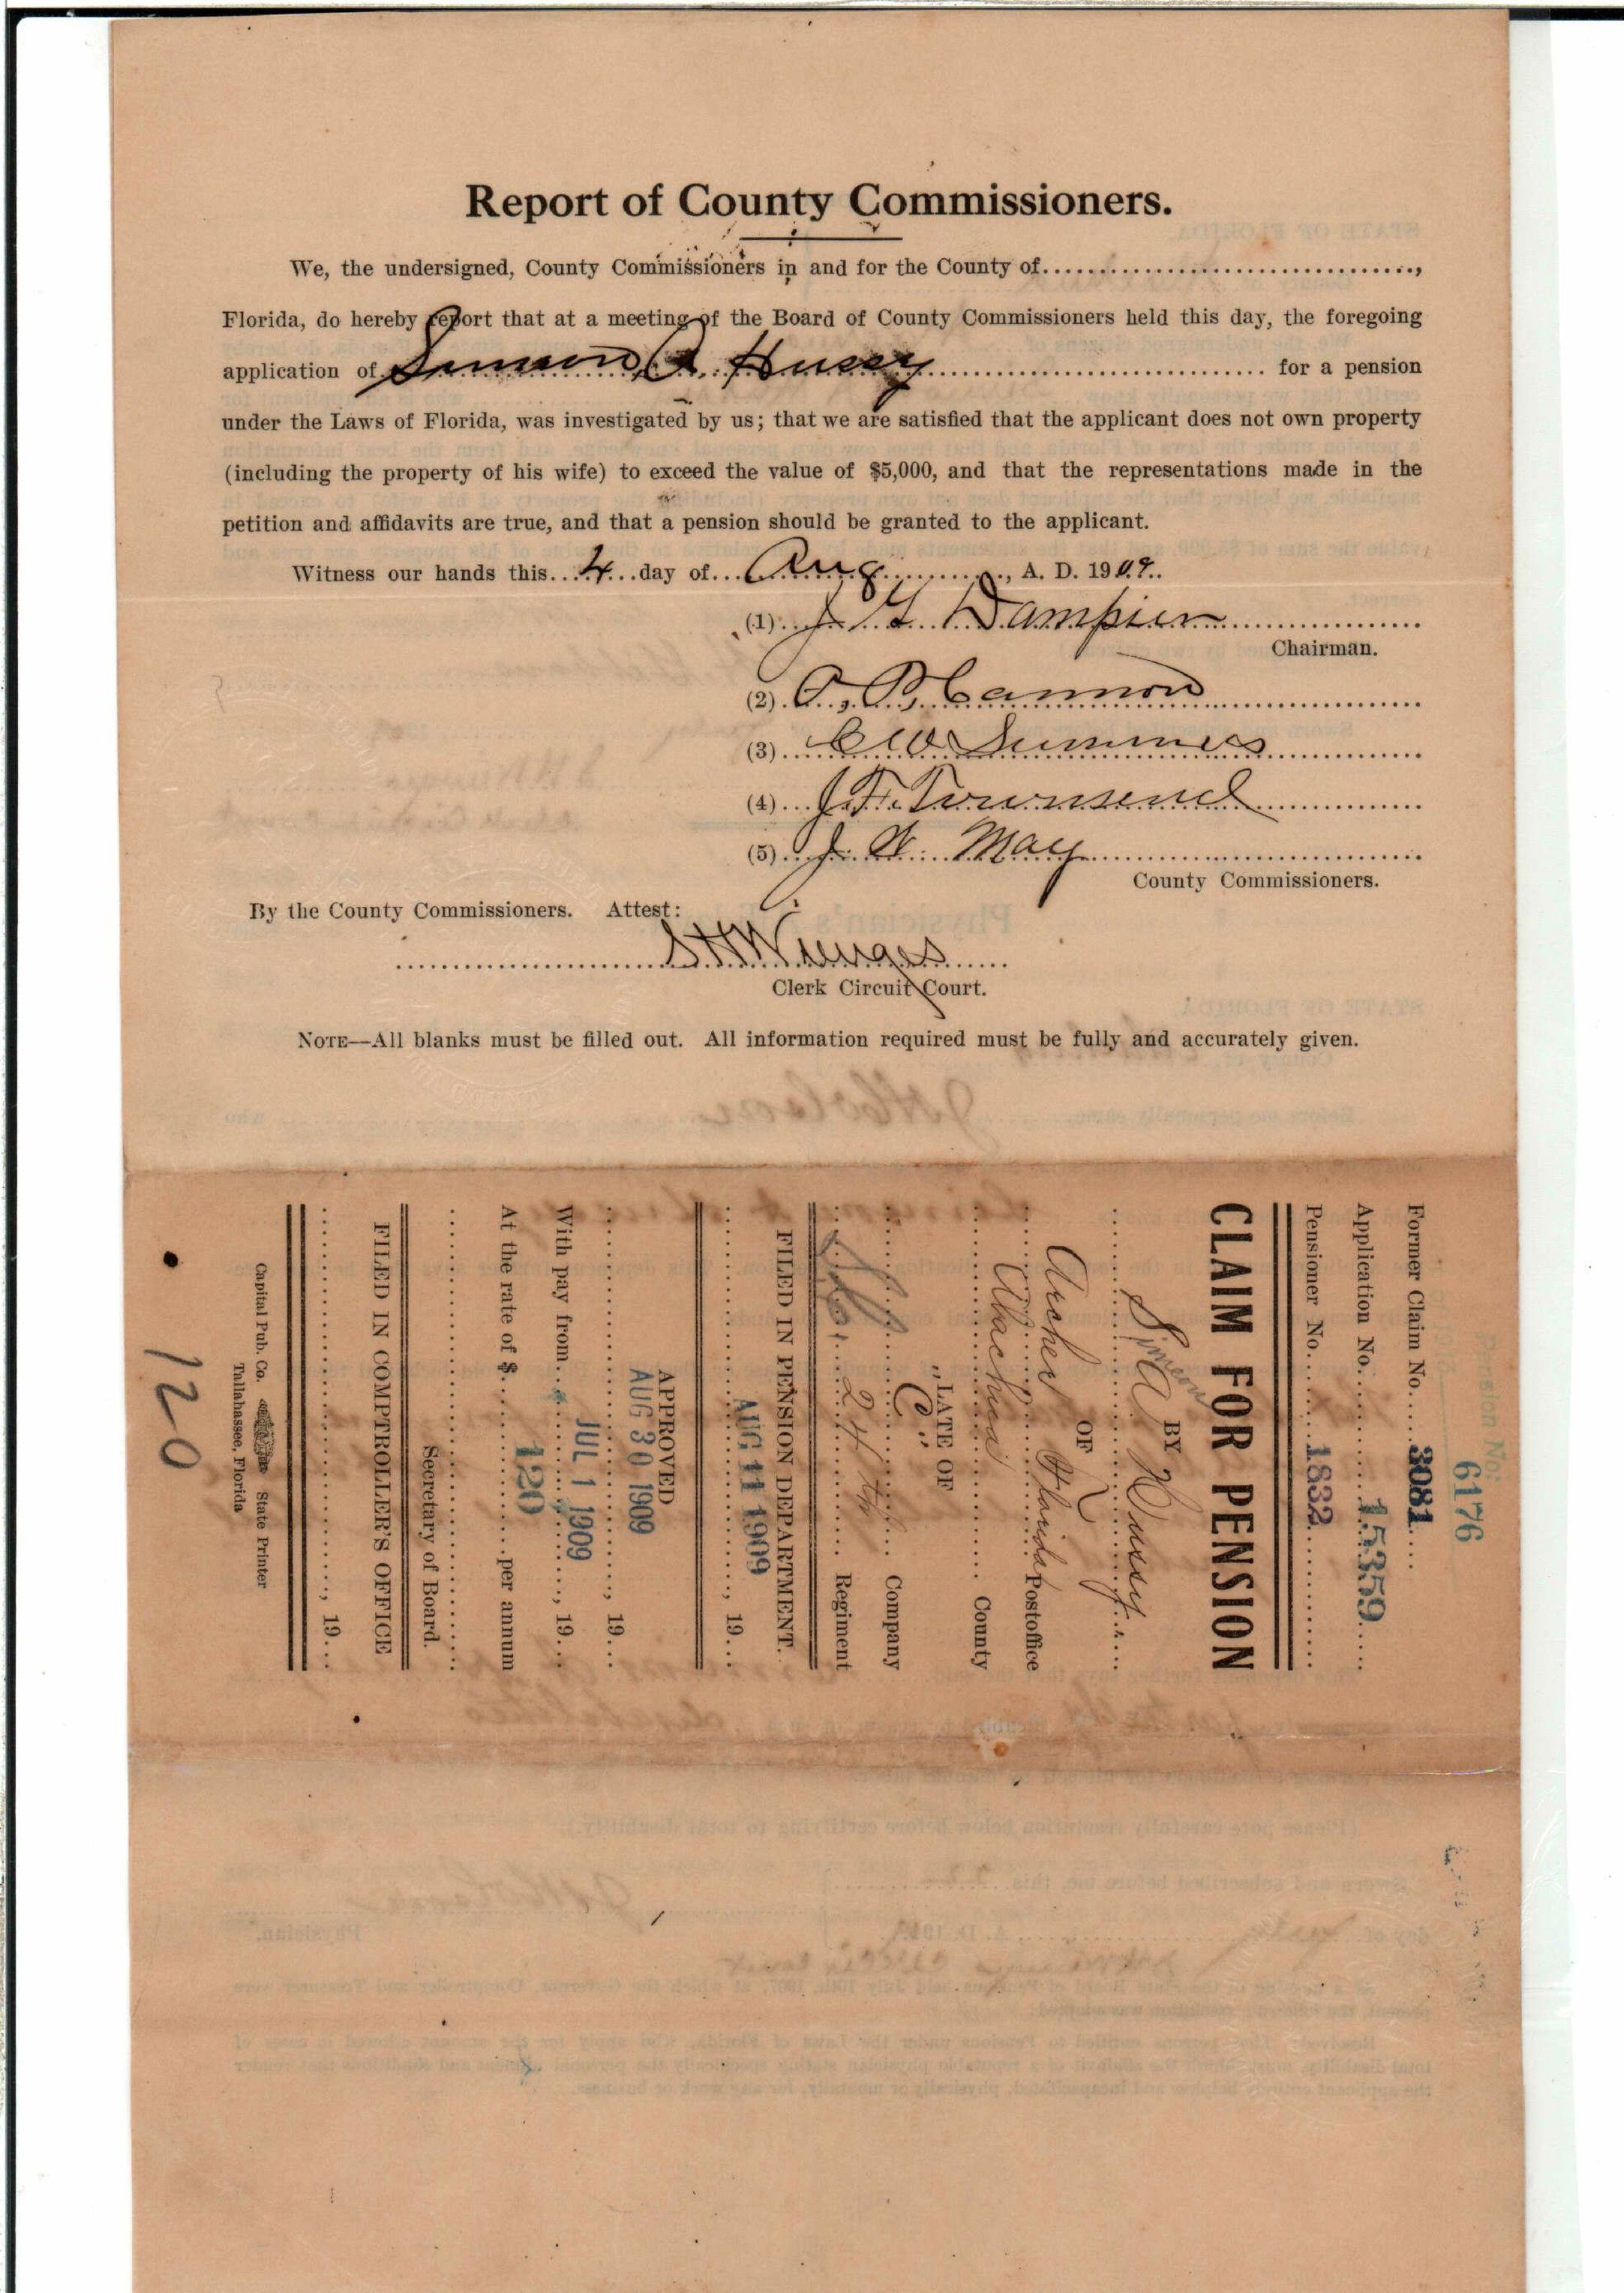 Report of County Commissioners.
We, the undersigned, County Commissioners in and for the County of..............................,
Florida, do hereby report that at a meeting of the Board of County Commissioners held this day, the foregoing
application of Simeon A. Hussy for a pension
under the Laws of Florida, was investigated by us; that we are satisfied that the applicant does not own property
(including the property of his wife) to exceed the value of $5,000, and that the representations made in the
petition and affidavits are true, and that a pension should be granted to the applicant.
Witness our hands this 4 day of Aug, A. D. 1909.
(1) J. G. Dampier
Chairman.
(2) A. P. Cannon
(3) C W Summers
(4) J. F. Townsend
(5) J. W. May
County Commissioners.
By the County Commissioners. Attest:
S H Wienges
Clerk Circuit Court.
NOTE—All blanks must be filled out. All information required must be fully and accurately given.
Pension No.
6176
Former Claim No. 3081
Application No. 15359
Pensioner No. 1832
CLAIM FOR PENSION
BY
Simeon
S. A. Hussy
OF
Archer Florida Postoffice
Alachua County
LATE OF
"C" Company
24 th Regiment
FILED IN PENSION DEPARTMENT.
AUG 11 1909, 19...
APPROVED
AUG 30 1909, 19...
With pay from JUL 1 1909, 19...
At the rate of $ 120 per annum
Secretary of Board.
FILED IN COMPTROLLER'S OFFICE
, 19...
Capital Pub. Co. State Printer
Tallahassee, Florida
120